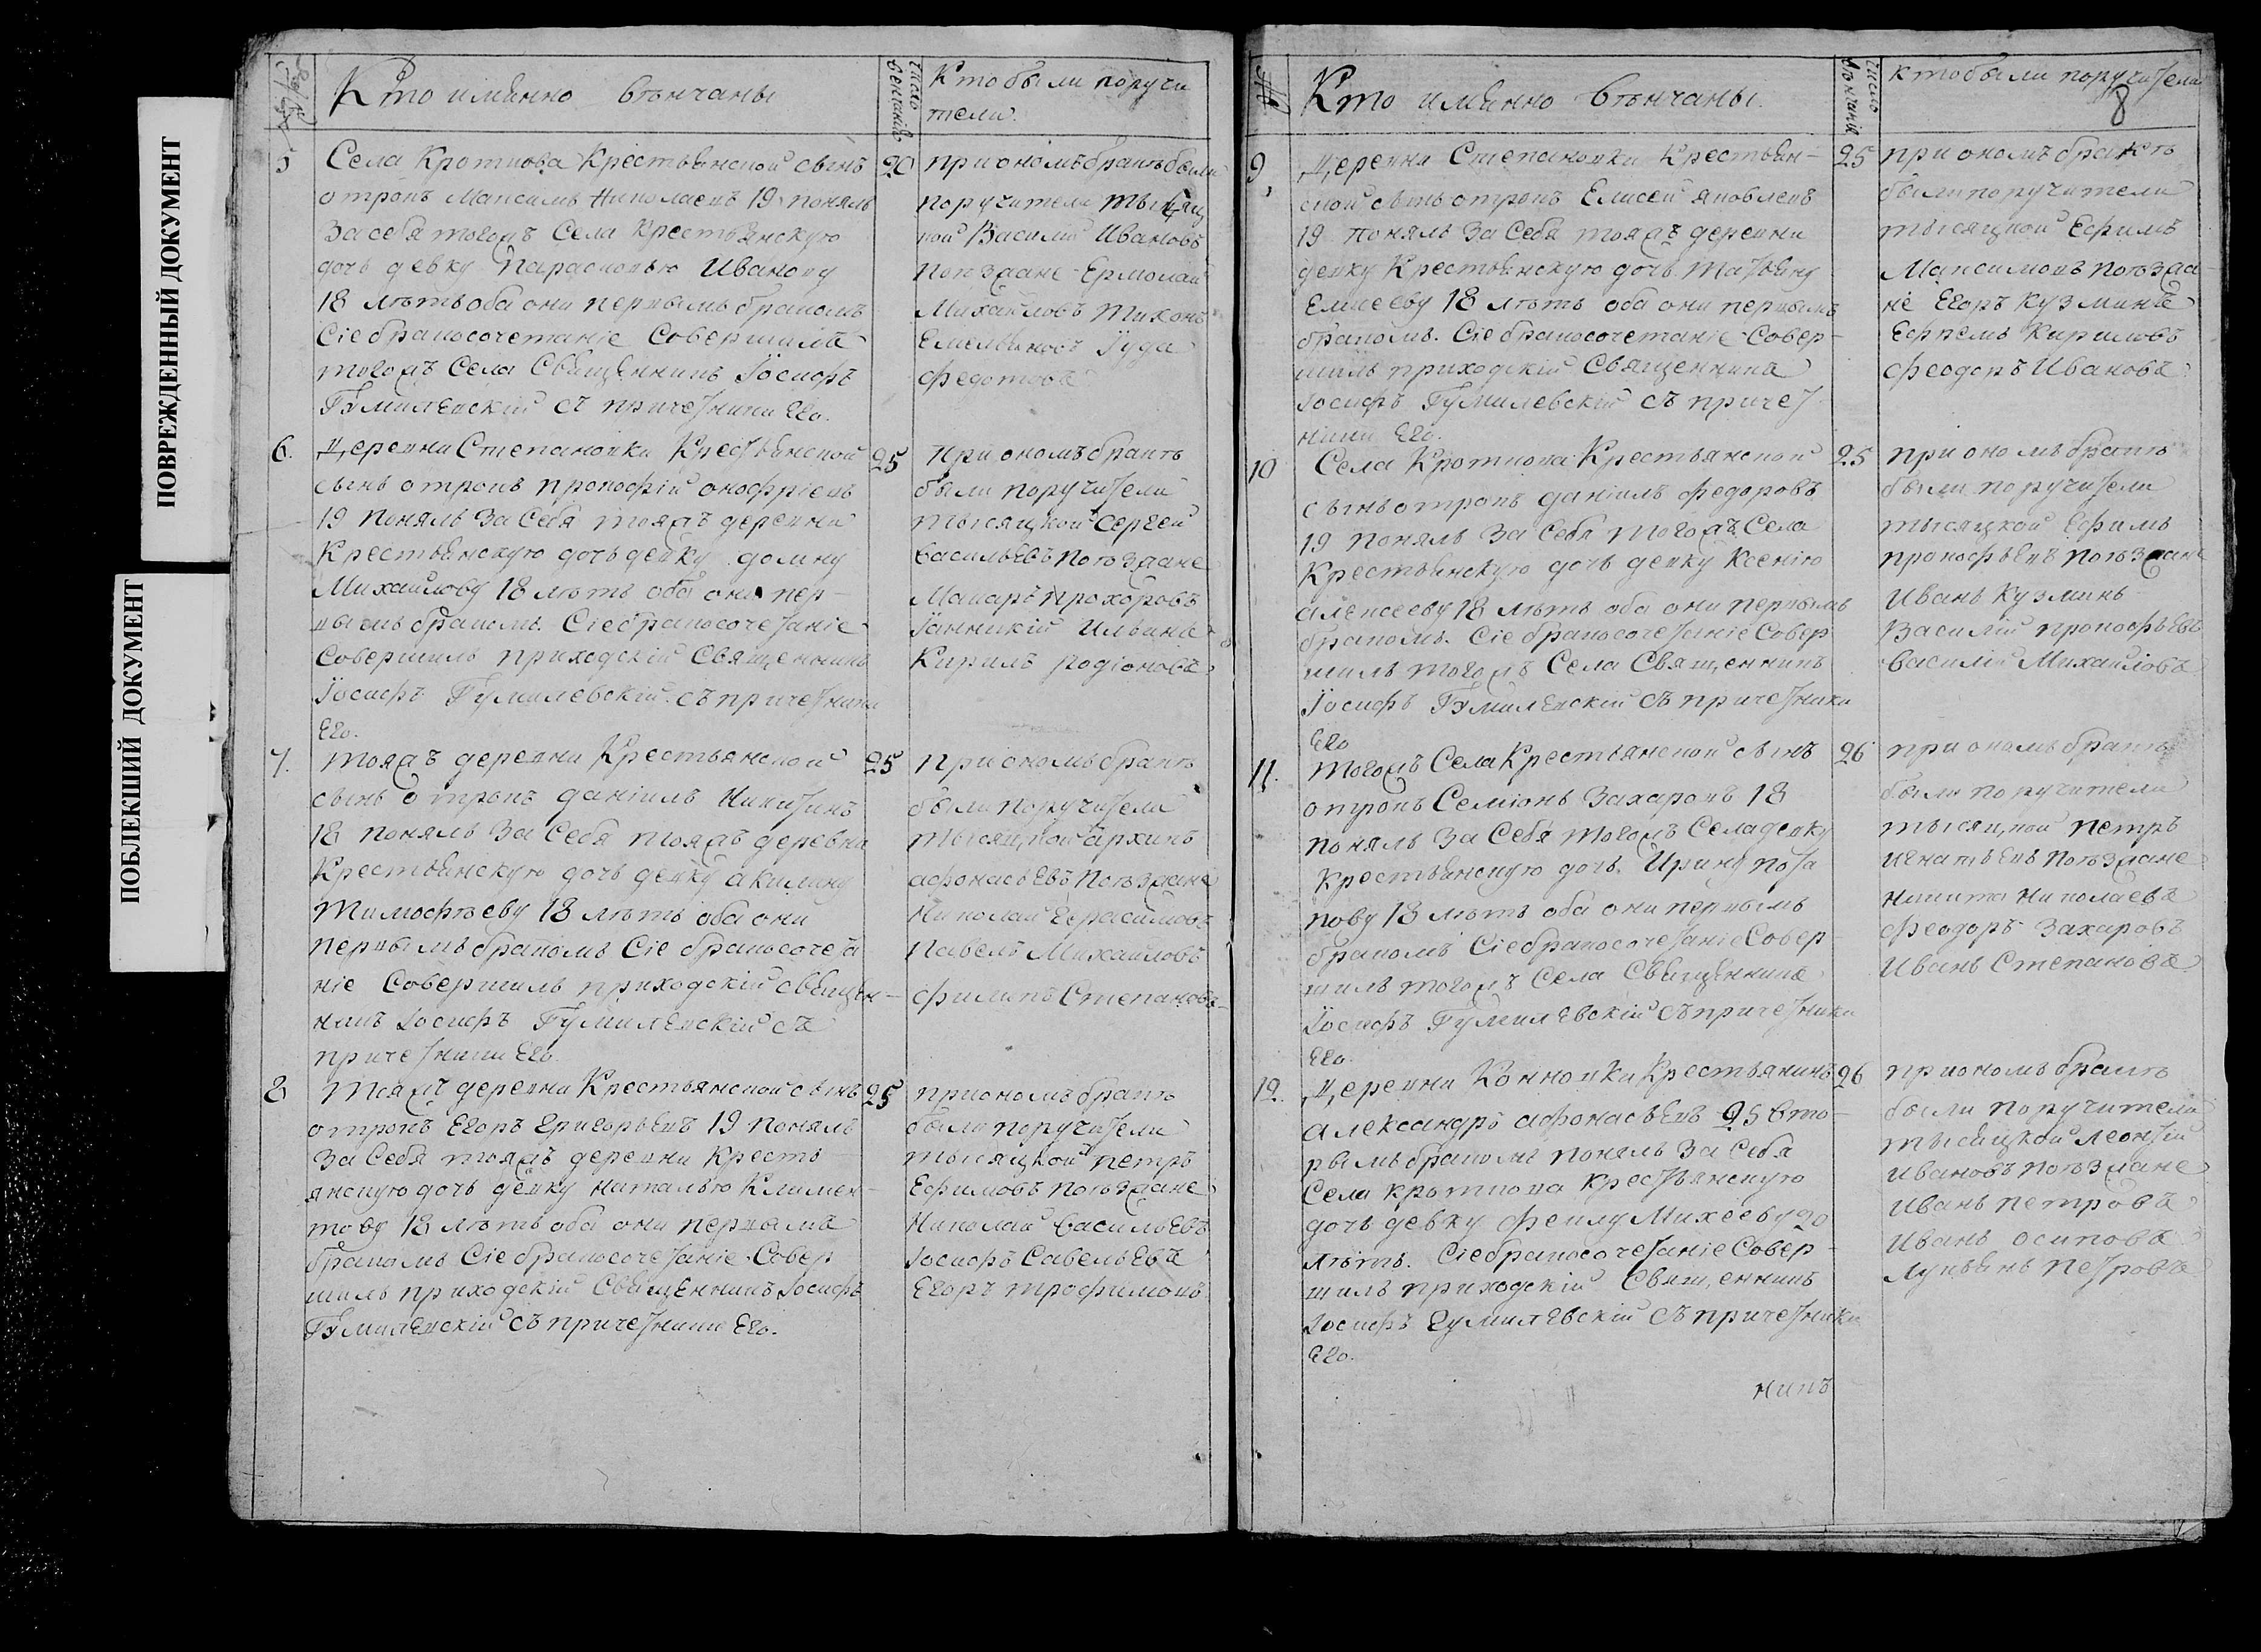 ПОВРЕЖДЕННЫЙ ДОКУМЕНТ
ПОБЛЕКШИЙ ДОКУМЕНТ
Кто имянно вѣнчаны
Число венчаній
Кто были поручи
тели.
5
Села Кроткова Крестьянской сынъ
отрокъ Максимъ Николаевъ 19 понялъ
за себя тогожъ Села Крестьянскую
дочь девку Парасковью Иванову
18 лѣтъ оба они первымъ бракомъ
Сіе бракосочетаніе Совершилъ
тогожъ Села Священникъ Іосифъ
Гумилевскій съ причетники Его.
20
при ономъ бракѣ были
поручители тысяц
кой Василій Ивановъ
поѣзжане Ермолай
Михайловъ Тихонъ
Емельяновъ Іуда
Федотовъ
6.
Деревни Степановки Крестьянской
сынъ отрокъ Прокофій Онофріевъ
19 понялъ за Себя тояжъ деревни
Крестьянскую дочь девку Домну
Михайлову 18 лѣтъ оба они пер-
вымъ бракомъ. Сіе бракосочетаніе
Совершилъ приходскій Священникъ
Іосифъ Гумилевскій съ причетники
Его.
25
При ономъ бракѣ
были поручители
тысяцкой Сергей
Васильевъ поѣзжане
Макаръ Прохоровъ
Іанникій Ильинъ
Кирилъ Родіоновъ
7.
Тояжъ деревни Крестьянской
сынъ отрокъ Даніилъ Никитинъ
18 понялъ За Себя тояжъ деревни
Крестьянскую дочь девку Акилину
Тимофѣеву 18 лѣтъ оба они
первымъ бракомъ Сіе бракосочета
ніе Совершилъ приходскій Священ-
никъ Іосифъ Гумилевскій съ
причетники Его.
25
При ономъ бракѣ
были поручители
тысяцкой Архипъ
Афонасьевъ поѣзжане
Николай Герасимовъ
Павелъ Михайловъ
Филипъ Степановъ
8
Тояжъ деревни Крестьянской сынъ
отрокъ Егоръ Григорьевъ 19 понялъ
За Себя тояжъ деревни Кресть
янскую дочь девку Наталью Климен-
тову 18 лѣтъ оба они первымъ
бракомъ Сіе бракосочетаніе Совер
шилъ приходскій Священникъ Іосифъ
Гумилевскій съ причетники Его.
25
при ономъ бракѣ
были поручители
тысяцкой Петръ
Ефимовъ поѣзжане
Николай Васильевъ
Іосифъ Савельевъ
Егоръ Трофимовъ
№
Кто имянно вѣнчаны.
Число вѣнчаній
Кто были поручители
8
9
Деревни Степановки Крестьян-
ской сынъ отрокъ Елисей Яковлевъ
19 понялъ За Себя тояжъ деревни
девку Крестьянскую дочь Татьяну
Елисееву 18 лѣтъ оба они первымъ
бракомъ. Сіе бракосочетаніе Совер-
шилъ приходскій Священникъ
Іосифъ Гумилевскій съ причет
ники Его.
25
при ономъ бракѣ
были поручители
тысяцкой Ефимъ
Максимовъ поѣзжа
не Егоръ Кузминъ
Кириловъ
Феодоръ Ивановъ
10
Села Кроткова Крестьянской
сынъ отрокъ Даніилъ Федоровъ
19 понялъ За Себя тогожъ Села
Крестьянскую дочь девку Ксенію
Алексееву 18 лѣтъ оба они первымъ
бракомъ. Сіе бракосочетаніе Совер
шилъ тогожъ Села Священникъ
Іосифъ Гумилевскій съ причетники
Его
25
при ономъ бракѣ
были поручители
тысяцкой Ефимъ
Прокофьевъ поѣзжане
Иванъ Кузминъ
Василій Прокофьевъ
Василій Михайловъ
11.
Тогожъ Села Крестьянской сынъ
отрокъ Семіонъ Захаровъ 18
понялъ За Себя тогожъ Села девку
Крестьянскую дочь Ирину Пота
пову 18 лѣтъ оба они первымъ
бракомъ Сіе бракосочетаніе Совер
шилъ тогожъ Села Священникъ
Іосифъ Гумилевскій съ причетники
Его.
26
при ономъ бракѣ
были поручители
тысяцкой Петръ
Игнатьевъ поѣзжане
Никита Николаевъ
Феодоръ Захаровъ
Иванъ Степановъ
12.
Деревни Конновки Крестьянинъ
Александръ Афонасьевъ 25 вто-
рымъ бракомъ понялъ за Себя
Села Кроткова Крестьянскую
дочь девку Феклу Михееву 20
лѣтъ. Сіе бракосочетаніе Совер-
шилъ приходскій Священникъ
Іосифъ Гумилевскій съ причетники
Его.
26
при ономъ бракѣ
были поручители
тысяцкой Леонтій
Ивановъ поѣзжане
Иванъ Петровъ
Иванъ Осиповъ
Лукьянъ Петровъ
никъ